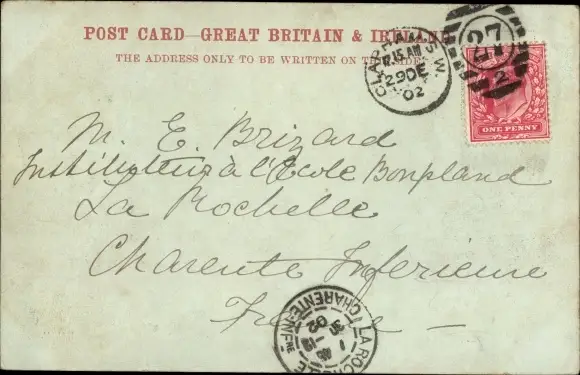 POST CARD—GREAT BRITAIN & IRELAND
THE ADDRESS ONLY TO BE WRITTEN ON THIS SIDE
CLAPHAM S.W.
.15 AM
29 DE
02
27
2
ONE PENNY
M. E. Brizard
Instituteur à l'École Bonpland
La Rochelle
Charente Inferieure
France
LA ROCHELLE
CHARENTE-INFRE
02